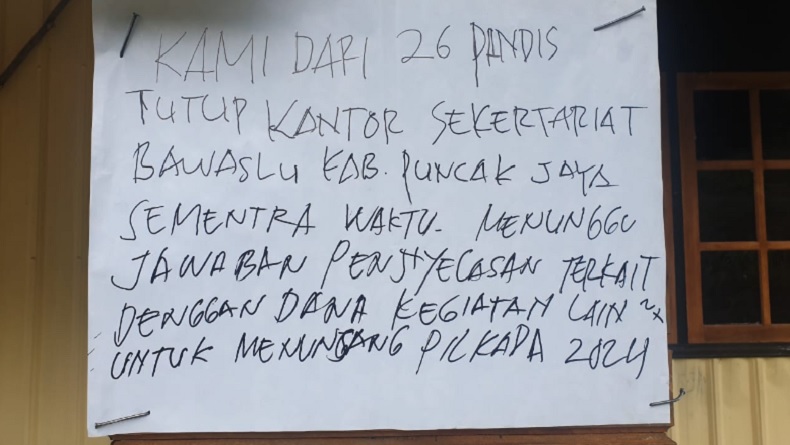 KAMI DARI 26 PANDIS
TUTUP KANTOR SEKERTARIAT
BAWASLU KAB. PUNCAK JAYA
SEMENTRA WAKTU. MENUNGGU
JAWABAN PENJYELASAN TERKAIT
DENGGAN DANA KEGIATAN LAIN ²x
UNTUK MENUNJANG PILKADA 2024